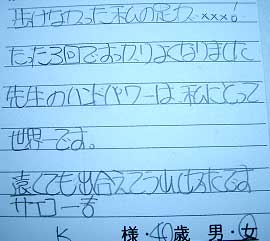 歩けなかった私の足が・・xxx!
たった3回ですっかりよくなりました
先生のハンドパワーは、私にとって
世界一です。
遠くても出合えてうれしかったです
サロ一番
K 様・40歳 男・女